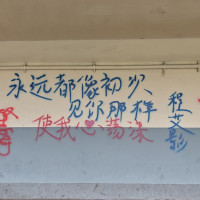 永远都像初次
见你那样
使我心荡漾
程艾影